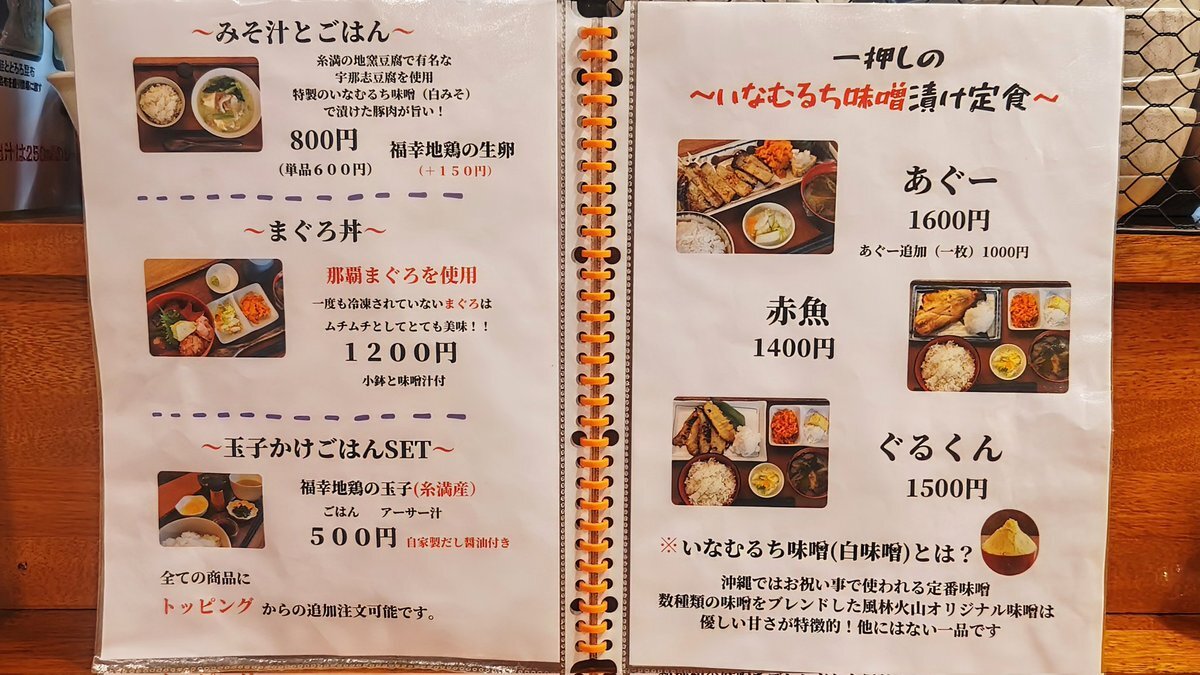 ～みそ汁とごはん～
糸満の地窯豆腐で有名な
宇那志豆腐を使用
特製のいなむるち味噌（白みそ）
で漬けた豚肉が旨い！
800円
（単品６００円）
福幸地鶏の生卵
（＋１５０円）
～まぐろ丼～
那覇まぐろを使用
一度も冷凍されていないまぐろは
ムチムチとしてとても美味！！
１２００円
小鉢と味噌汁付
～玉子かけごはんSET～
福幸地鶏の玉子(糸満産）
ごはん アーサー汁
５００円 自家製だし醤油付き
全ての商品に
トッピング からの追加注文可能です。
一押しの
～いなむるち味噌漬け定食～
あぐー
1600円
あぐー追加（一枚）1000円
赤魚
1400円
ぐるくん
1500円
※いなむるち味噌(白味噌)とは？
沖縄ではお祝い事で使われる定番味噌
数種類の味噌をブレンドした風林火山オリジナル味噌は
優しい甘さが特徴的！他にはない一品です